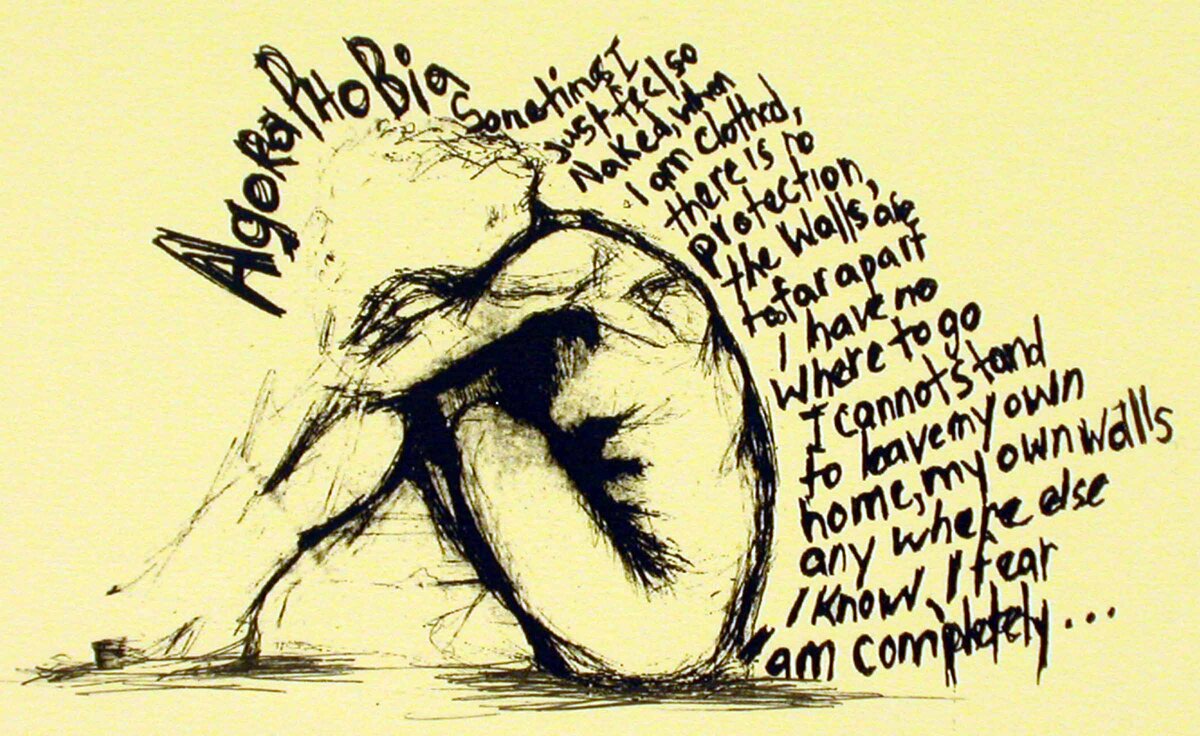 AgoRaPHoBia
Sometimes I
Just feel so
Naked, when
I am clothed,
there is no
protection,
the walls are
to far apart
I have no
where to go
I cannot stand
to leave my own
home, my own walls
any where else
I know, I fear
I am completely...